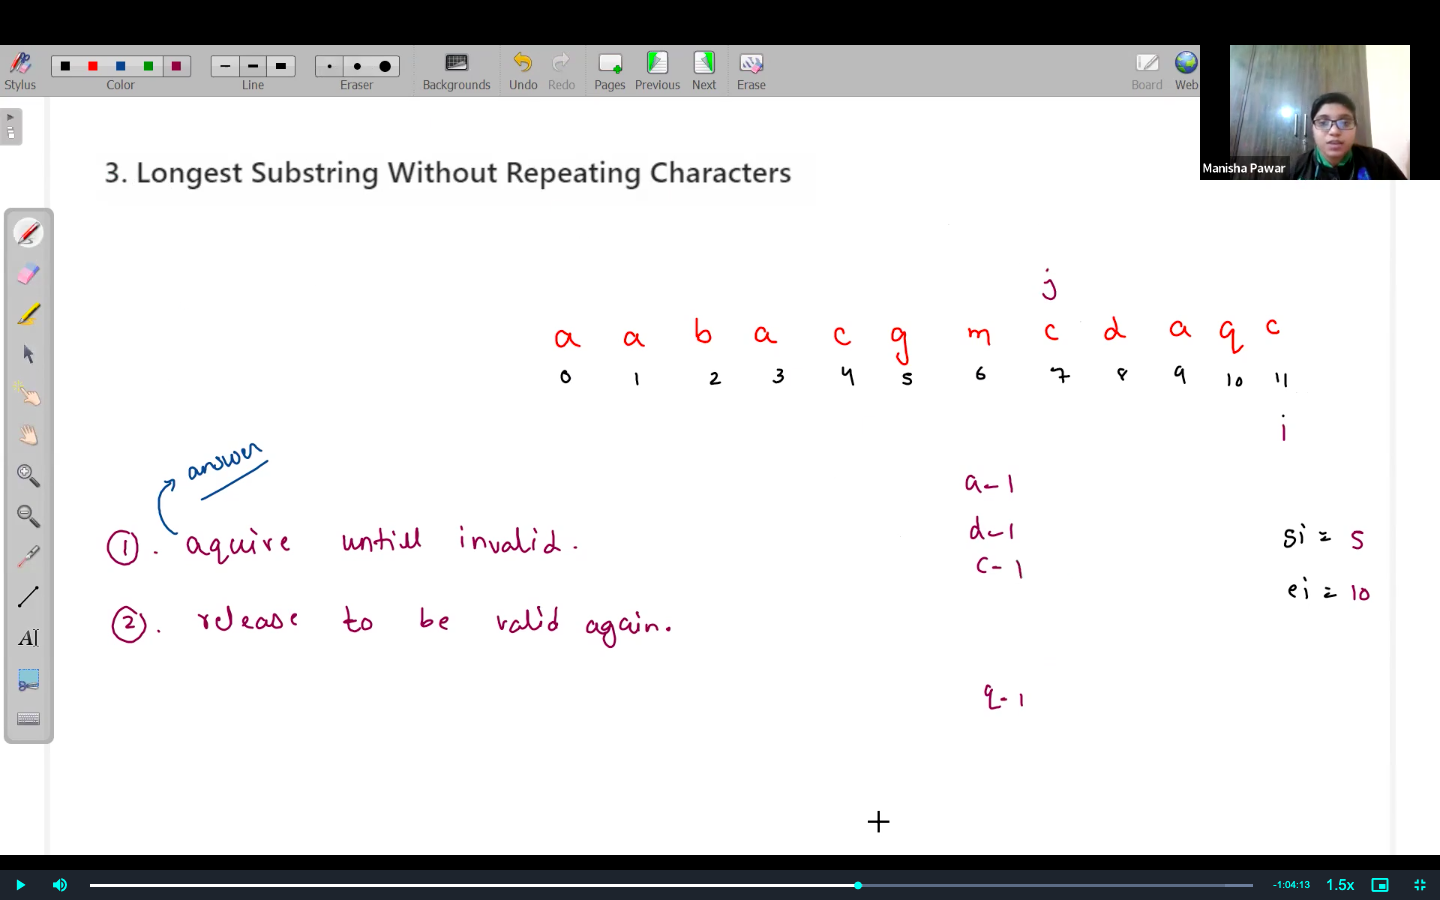 Stylus Color Line Eraser Backgrounds Undo Redo Pages Previous Next Erase Board Web
Manisha Pawar
3. Longest Substring Without Repeating Characters
j
a a b a c g m c d a q c
0 1 2 3 4 5 6 7 8 9 10 11
i
answer
a-1
① . aquire untill invalid.
d-1
si = 5
c-1
ei = 10
② . release to be valid again.
AI
q-1
-1:04:13 1.5x